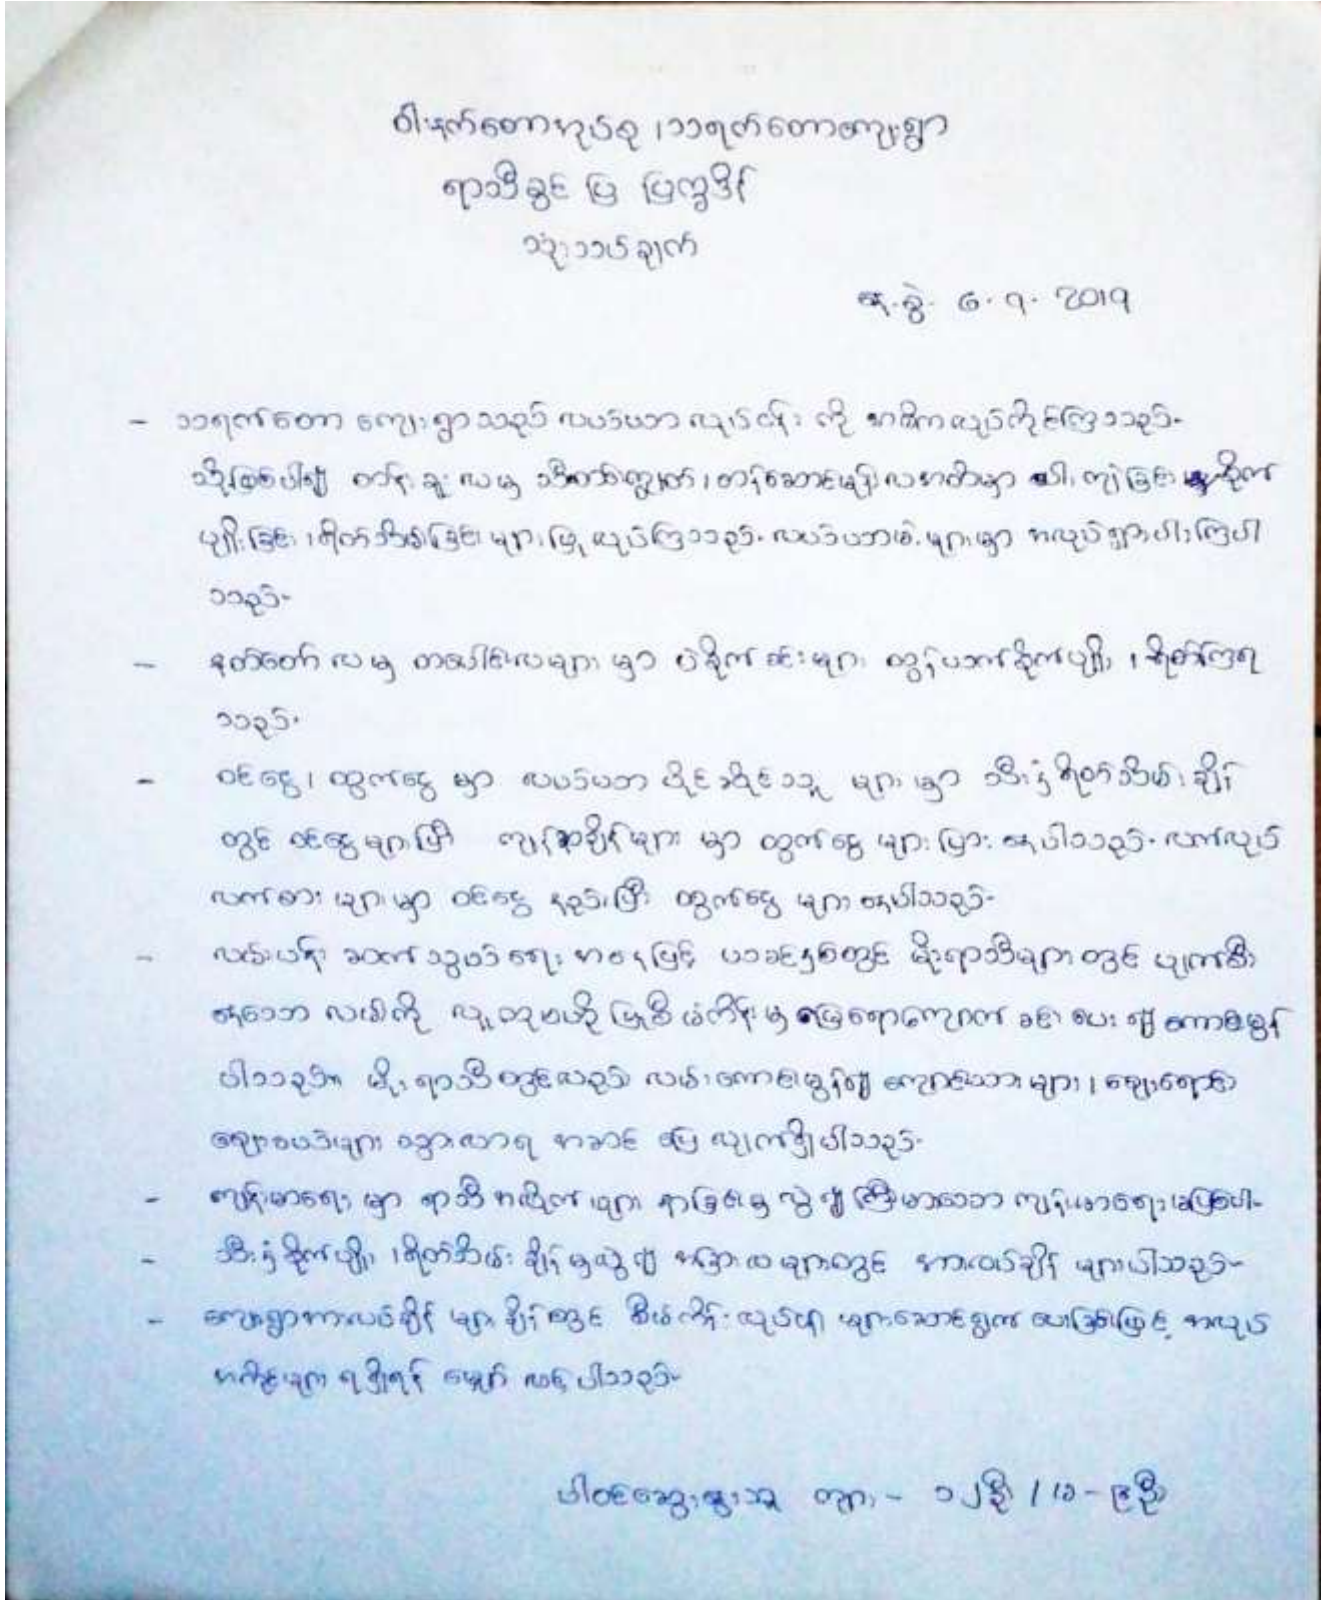 ဝါးနက်တောအုပ်စု ၊ သရက်တောကျေးရွာ
ရာသီခွင် ပြ ပြက္ခဒိန်
သုံးသပ်ချက်
နေ့စွဲ- ၆.၇.2019
- သရက်တော ကျေးရွာသည် လယ်ယာ လုပ်ငန်း ကို အဓိက လုပ်ကိုင်ကြသည်။
သို့ဖြစ်ပါ၍ တန်ခူးလမှ သီတင်းကျွတ် ၊ တန်ဆောင်မုန်းလအထိမှာ ပျိုးကျဲခြင်း စိုက်
ပျိုးခြင်း ၊ ရိတ်သိမ်းခြင်း များ ပြုလုပ်ကြသည်။ လယ်ယာမဲ့ များမှာ အလုပ်ရှားပါးကြပါ
သည်။
- နတ်တော် လမှ တပေါင်းလများ မှာ ပဲစိုက်ခင်းများ ထွန်ယက်စိုက်ပျိုး ၊ ရိတ်ကြရ
သည်။
- ဝင်ငွေ ၊ ထွက်ငွေ မှာ လယ်ယာ ပိုင်ဆိုင်သူ များ မှာ သီးနှံရိတ်သိမ်း ချိန်
တွင် ဝင်ငွေများပြီး ကျန်အချိန်များ မှာ ထွက်ငွေ များပြား နေပါသည်။ လက်လုပ်
လက်စား များမှာ ဝင်ငွေ နည်းပြီး ထွက်ငွေ များနေပါသည်။
- လမ်းပန်း ဆက်သွယ်ရေး အနေဖြင့် ယခင်နှစ်တွင် မိုးရာသီများ တွင် ပျက်စီး
နေသော လမ်းကို လူထုဗဟိုပြုစီမံကိန်းမှ မြေရောကျောက် ခင်းပေး၍ ကောင်းမွန်
ပါသည်။ မိုးရာသီတွင်လည်း လမ်းကောင်းမွန်၍ ကျောင်းသားများ ၊ ဈေးရောင်း
ဈေးဝယ်များ သွားလာရ အဆင်ပြေ လျက်ရှိပါသည်။
- ကျန်းမာရေး မှာ ရာသီ အလိုက်ဖျား နာခြင်းမှ လွဲ၍ ကြီးမားသော ကျန်းမာရေး မဖြစ်ပါ။
- သီးနှံစိုက်ပျိုး ၊ ရိတ်သိမ်း ချိန်မှလွဲ၍ အခြားလများတွင် အားလပ်ချိန် များပါသည်။
- ကျေးရွာအားလပ်ချိန် များ ချိန်တွင် စီမံကိန်းလုပ်ငန်း များဆောင်ရွက် ပေးခြင်းဖြင့် အလုပ်
အကိုင်များ ရရှိရန် မျှော်လင့်ပါသည်။
ပါဝင်ဆွေးနွေးသူ ကျား - ၁၂ ဦး / မ - ၉ ဦး